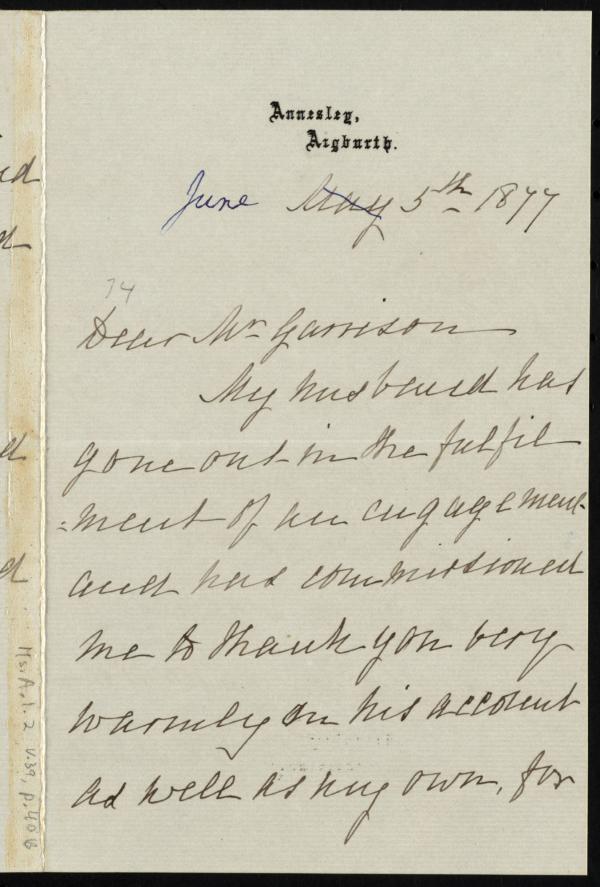 Annesley,
Aigburth.
June May 5th 1877
74
Dear Mr Garrison
My husband has
gone out in the fulfil
=ment of an engagement
and has commissioned
me to thank you very
warmly on his account
as well as my own, for
Ms.A.1.2 v.39, p.40B